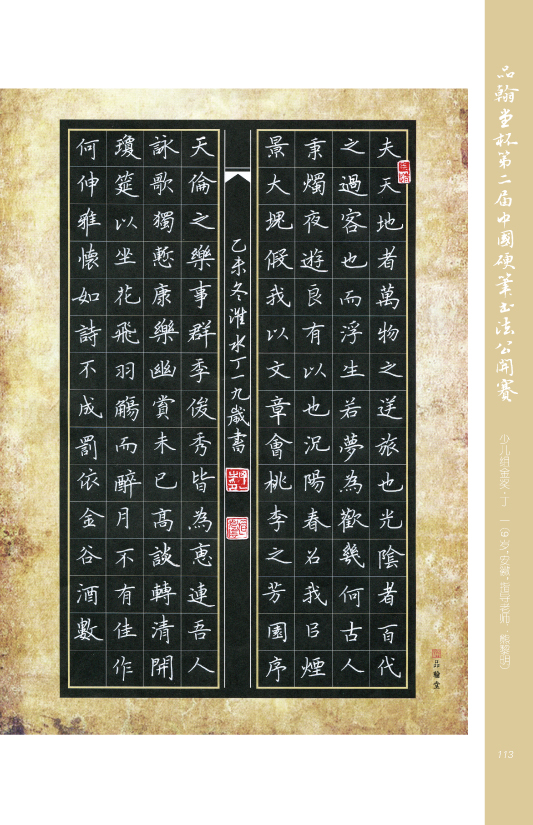 夫天地者萬物之逆旅也光陰者百代
之過客也而浮生若夢為歡幾何古人
秉燭夜遊良有以也況陽春召我以煙
景大塊假我以文章會桃李之芳園序
天倫之樂事群季俊秀皆為惠連吾人
詠歌獨慙康樂幽賞未已高談轉清開
瓊筵以坐花飛羽觴而醉月不有佳作
何伸雅懷如詩不成罰依金谷酒數
乙未冬淮水丁一九歲書
品翰堂
品翰堂杯第二届中國硬筆书法公開賽
113